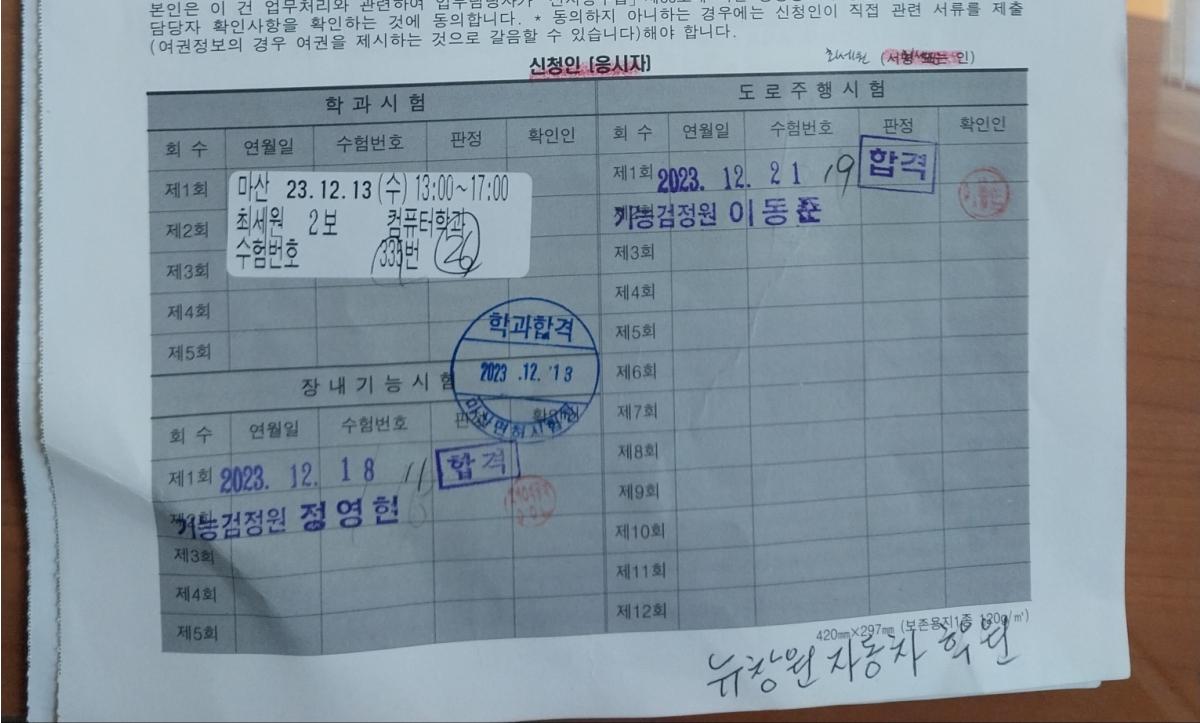 본인은 이 건 업무처리와 관련하여 업무담당자가
담당자 확인사항을 확인하는 것에 동의합니다. * 동의하지 아니하는 경우에는 신청인이 직접 관련 서류를 제출
(여권정보의 경우 여권을 제시하는 것으로 갈음할 수 있습니다)해야 합니다.
신청인 [응시자] 최세원 (서명 또는 인)
학과시험
회 수 연월일 수험번호 판정 확인인
제1회
제2회
제3회
제4회
제5회
마산 23.12.13(수) 13:00~17:00
최세원 2보 컴퓨터학과
수험번호 335번 26
학과합격
2023 .12. '13
장내기능시험
회 수 연월일 수험번호 판정 확인인
제1회 2023. 12. 18 11 합격
기능검정원 정영헌
제3회
제4회
제5회
도로주행시험
회 수 연월일 수험번호 판정 확인인
제1회 2023. 12. 21 19 합격
기능검정원 이동준
제3회
제4회
제5회
제6회
제7회
제8회
제9회
제10회
제11회
제12회
420㎜×297㎜ (보존용지1종 120g/㎡)
뉴창원 자동차 학원